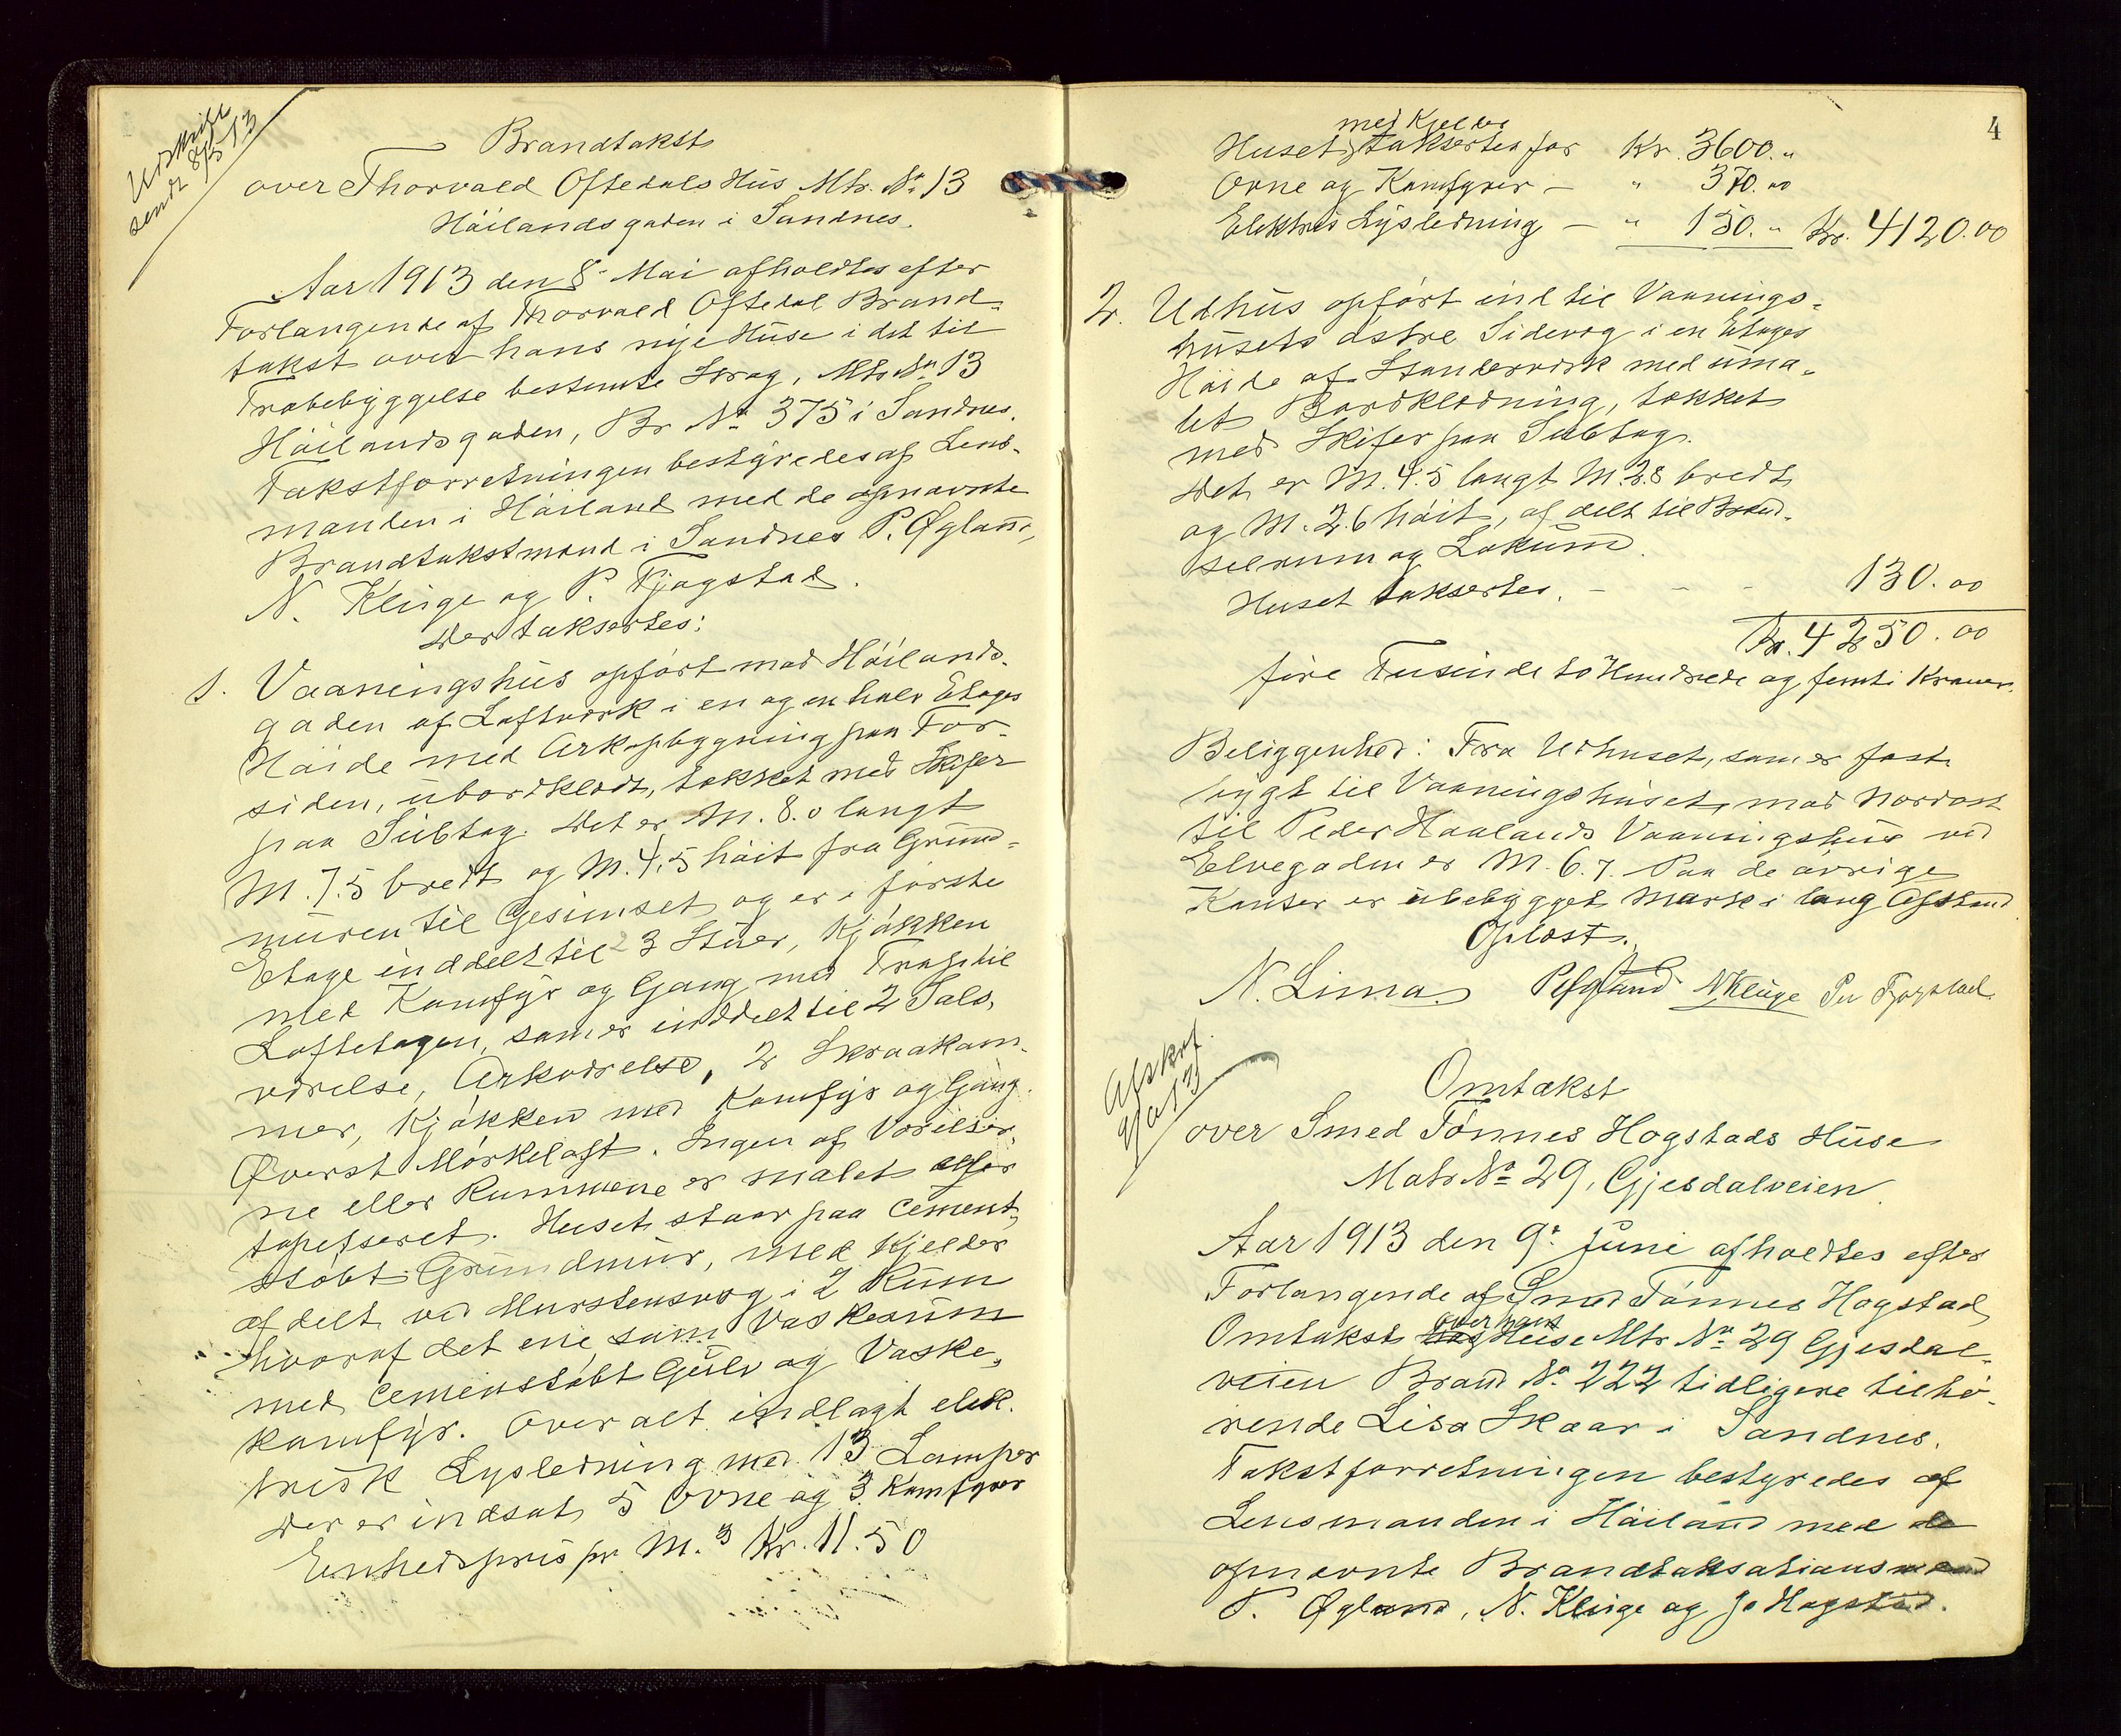 Udskrift
sendt 8/5 13
Brandtakst
over Thorvald Oftedals Hus Mtr. No 13
Höilandsgaden i Sandnes.
Aar 1913 den 8. Mai afholdtes efter
Forlangende af Thorvald Oftedal Brand-
takst over hans nye Huse i det til
Træbebyggelse bestemte Strøg, Mtr. No 13
Höilandsgaden, Br No 375 i Sandnes.
Takstforretningen bestyredes af Lens-
manden i Höiland med de opnævnte
Brandtakstmænd i Sandnes P. Øglænd,
N. Kluge og P. Tjøgstad.
Der taksertes:
1. Vaaningshus opfört mod Höilands-
gaden af Loftværk i en og en halv Etages
Höide med Arkopbygning paa For-
siden, ubordklædt, tækket med Skifer
paa Subtag. Det er M. 8.0 langt
M. 7.5 bredt og M. 4.5 höit fra Grund-
muren til Gesimset og er i förste
Etage inddelt til 3 Stuer, Kjökken
med Komfyr og Gang med Trap til
Loftetagen, som er inddelt til 2 Sals-
værelse, Arkværelse, 2 Skraakam-
mer, Kjökken med Komfyr og Gang.
Øverst Mörkeloft. Ingen af Værelser-
ne eller Rummene er malet eller
tapetseret. Huset staar paa Cement-
stöbt Grundmur, med Kjelder
afdelt ved Murstensvæg i 2 Rum
hvoraf det ene som Vaskerum
med Cementstöbt Gulv og Vaske-
komfyr. Overalt indlagt elek-
trisk Lysledning med 13 Lamper
Der er indsat 5 Ovne og 3 Komfyrer
Enhedspris pr M.3 Kr. 11.50
4
med Kjelder
Huset taksertes for Kr. 3600.„
Ovne og Komfyrer — „ 370.00
Elektris Lysledning — „ 150.„ Kr. 4120.00
2. Udhus opfört ind til Vaanings-
husets östre Sidevæg i en Etages
Höide af Stenderværk med uma-
let Bordklædning, tækket
med Skifer paa Subtag.
Det er M. 4.5 langt M. 2.8 bredt
og M. 2.6 höit, afdelt til Brænd-
selrum og Lokum.
Huset taksertes. — — - 130.00
Kr. 4250.00
fire Tusinde to Hundrede og femti Kroner.
Beliggenhed: Fra Udhuset, som er fast
bygt til Vaaningshuset, mod Nordost
til Peder Haalands Vaaningshus ved
Elvegaden er M. 6.7. Paa de övrige
Kanter er ubebygget Mark i lang Afstand
Oplæst.
N. Lima P Øglænd N Kluge Per Tjøgstad
Afskrf.
9/6 13
Omtakst
over Smed Tönnes Hogstads Huse
Matr No 29, Gjesdalveien.
Aar 1913 den 9. Juni afholdtes efter
Forlangende af Smed Tönnes Hogstad
over hans
Omtakst Huse Mtr No 29 Gjesdal-
veien Brand No 222 tidligere tilhö-
rende Lisa Skaar i Sandnes.
Takstforretningen bestyredes af
Lensmanden i Höiland med de
opnævnte Brandtaksationsmænd
P. Øglænd, N. Kluge og Jo Hogstad.